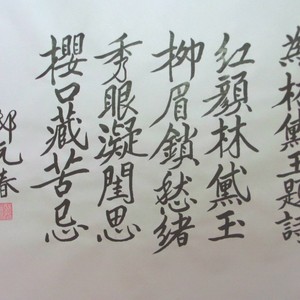 為林黛玉題詩
紅顏林黛玉
柳眉鎖愁緒
秀眼凝閨思
櫻口藏苦忌
元春